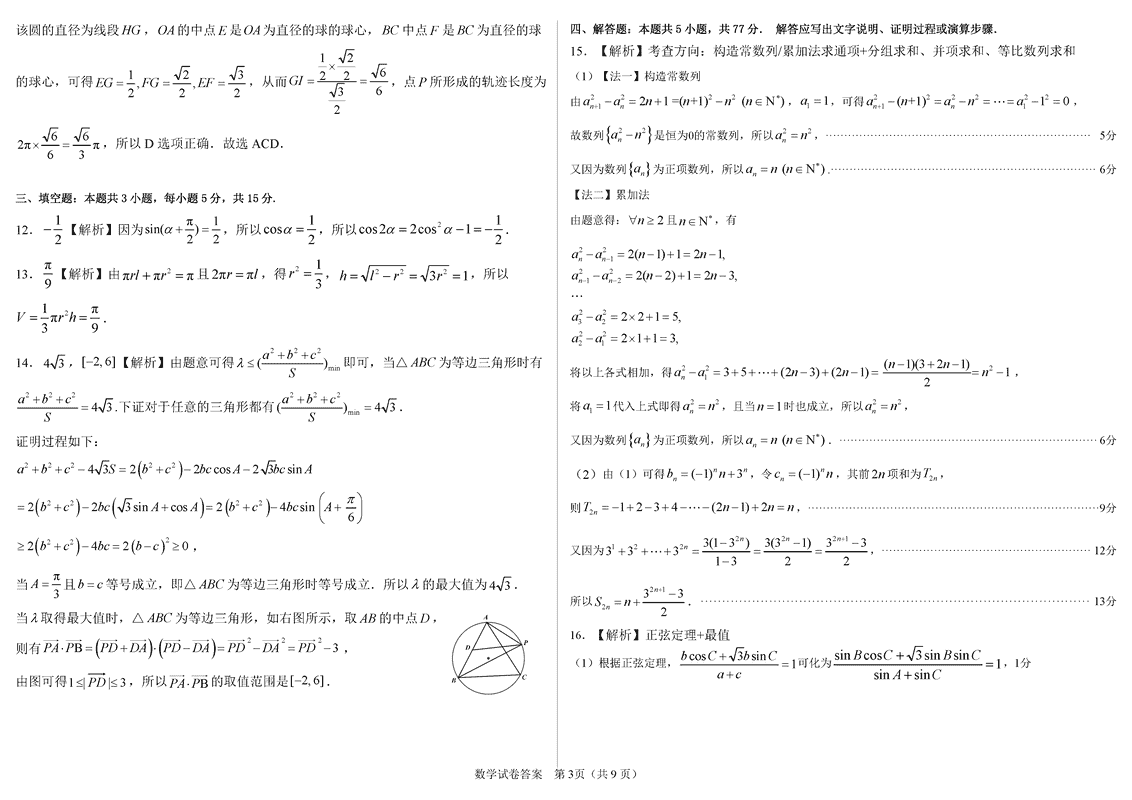 该圆的直径为线段 HG，OA 的中点 E 是 OA 为直径的球的球心，BC 中点 F 是 BC 为直径的球
的球心，可得 EG = 1/2, FG = √2/2, EF = √3/2，从而 GI = (1/2 × √2/2)/(√3/2) = √6/6，点 P 所形成的轨迹长度为
2π × √6/6 = √6/3 π，所以 D 选项正确．故选 ACD．
三、填空题：本题共 3 小题，每小题 5 分，共 15 分．
12．−1/2【解析】因为 sin(α + π/2) = 1/2，所以 cosα = 1/2，所以 cos2α = 2cos²α − 1 = −1/2．
13．π/9【解析】由 πrl + πr² = π 且 2πr = πl，得 r² = 1/3，h = √(l² − r²) = √(3r²) = 1，所以
V = 1/3 πr²h = π/9．
14．4√3，[−2, 6]【解析】由题意可得 λ ≤ ((a² + b² + c²)/S)min 即可，当△ABC 为等边三角形时有
(a² + b² + c²)/S = 4√3．下证对于任意的三角形都有 ((a² + b² + c²)/S)min = 4√3．
证明过程如下：
a² + b² + c² − 4√3S = 2(b² + c²) − 2bc cos A − 2√3bc sin A
= 2(b² + c²) − 2bc(√3 sin A + cos A) = 2(b² + c²) − 4bc sin(A + π/6)
≥ 2(b² + c²) − 4bc = 2(b − c)² ≥ 0，
当 A = π/3 且 b = c 等号成立，即△ABC 为等边三角形时等号成立．所以 λ 的最大值为 4√3．
当 λ 取得最大值时，△ABC 为等边三角形，如右图所示，取 AB 的中点 D，
则有 PA·PB = (PD + DA)·(PD − DA) = PD² − DA² = PD² − 3，
由图可得 1 ≤ |PD| ≤ 3，所以 PA·PB 的取值范围是[−2, 6]．
A
D
P
B
C
四、解答题：本题共 5 小题，共 77 分． 解答应写出文字说明、证明过程或演算步骤．
15．【解析】考查方向：构造常数列/累加法求通项+分组求和、并项求和、等比数列求和
（1）【法一】构造常数列
由 aₙ₊₁² − aₙ² = 2n + 1 =(n+1)² − n² (n ∈ N*)，a₁ = 1，可得 aₙ₊₁² − (n+1)² = aₙ² − n² = ⋯ = a₁² − 1² = 0，
故数列{aₙ² − n²}是恒为0的常数列，所以 aₙ² = n²，…… 5分
又因为数列{aₙ}为正项数列，所以 aₙ = n (n ∈ N*)．…… 6分
【法二】累加法
由题意得：∀n ≥ 2 且 n ∈ N*，有
aₙ² − aₙ₋₁² = 2(n − 1) + 1 = 2n − 1,
aₙ₋₁² − aₙ₋₂² = 2(n − 2) + 1 = 2n − 3,
…
a₃² − a₂² = 2 × 2 + 1 = 5,
a₂² − a₁² = 2 × 1 + 1 = 3,
将以上各式相加，得 aₙ² − a₁² = 3 + 5 + ⋯ + (2n − 3) + (2n − 1) = (n − 1)(3 + 2n − 1)/2 = n² − 1，
将 a₁ = 1 代入上式即得 aₙ² = n²，且当 n = 1 时也成立，所以 aₙ² = n²，
又因为数列{aₙ}为正项数列，所以 aₙ = n (n ∈ N*)．…… 6分
（2）由（1）可得 bₙ = (−1)ⁿ n + 3ⁿ，令 cₙ = (−1)ⁿ n，其前 2n 项和为 T₂ₙ，
则 T₂ₙ = −1 + 2 − 3 + 4 − ⋯ − (2n − 1) + 2n = n，…… 9分
又因为 3¹ + 3² + ⋯ + 3²ⁿ = 3(1 − 3²ⁿ)/(1 − 3) = 3(3²ⁿ − 1)/2 = (3²ⁿ⁺¹ − 3)/2，…… 12分
所以 S₂ₙ = n + (3²ⁿ⁺¹ − 3)/2．…… 13分
16．【解析】正弦定理+最值
（1）根据正弦定理，(b cos C + √3b sin C)/(a + c) = 1 可化为 (sin B cos C + √3 sin B sin C)/(sin A + sin C) = 1，1分
数学试卷答案 第 3页（共 9 页）